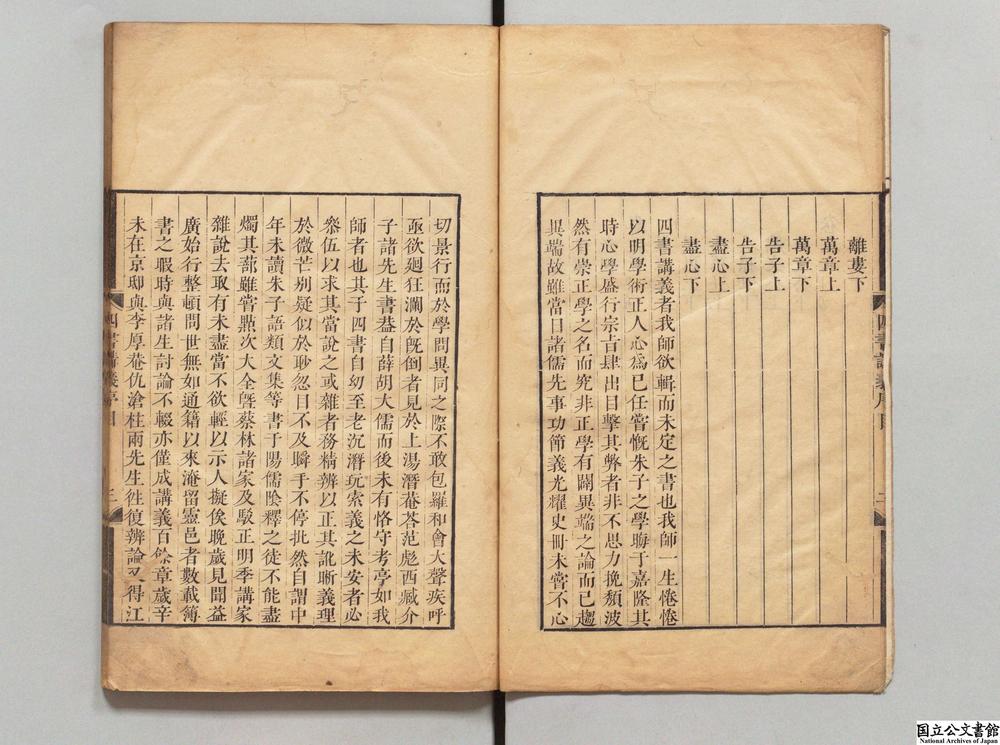 離婁下
萬章上
萬章下
告子上
告子下
盡心上
盡心下
四書講義者我師欲輯而未定之書也我師一生惓惓
以明學術正人心爲已任嘗慨朱子之學晦于嘉隆其
時心學盛行宗旨肆出目擊其弊者非不思力挽頹波
然有崇正學之名而究非正學有闢異端之論而已趨
異端故雖當日諸儒先事功節義光耀史冊未嘗不心
切景行而於學問異同之際不敢包羅和會大聲疾呼
亟欲廻狂瀾於旣倒者見於上湯潛菴荅范彪西臧介
子諸先生書葢自薛胡大儒而後未有恪守考亭如我
師者也其于四書自幼至老沉潛玩索義之未安者必
叅伍以求其當說之或雜者務精辨以正其訛晰義理
於微芒别疑似於眇忽目不及瞬手不停批然自謂中
年未讀朱子語類文集等書于陽儒陰釋之徒不能盡
燭其蔀雖嘗㸃次大全曁蔡林諸家及駁正明季講家
雜說去取有未盡當不欲輕以示人擬俟晚歲見聞益
廣始行整頓問世無如通籍以來淹留靈邑者數載簿
書之暇時與諸生討論不輟亦僅成講義百餘章歲辛
未在京邸與李厚菴仇滄柱兩先生徃復辨論又得江
四書講義序目
三
二
国立公文書館
National Archives of Japan